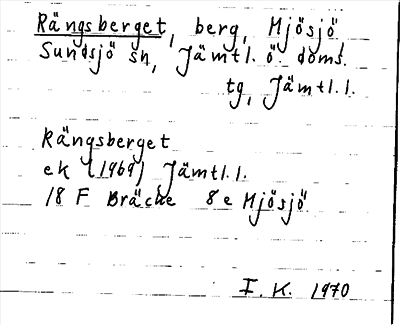 Rängsberget, berg, Mjösjö,
Sundsjö sn, Jämtl. ö. doms.
tg, Jämtl.l.
Rängsberget
ek (1969) Jämtl.l.
18 F Bräcke 8e Mjösjö
I.K. 1970